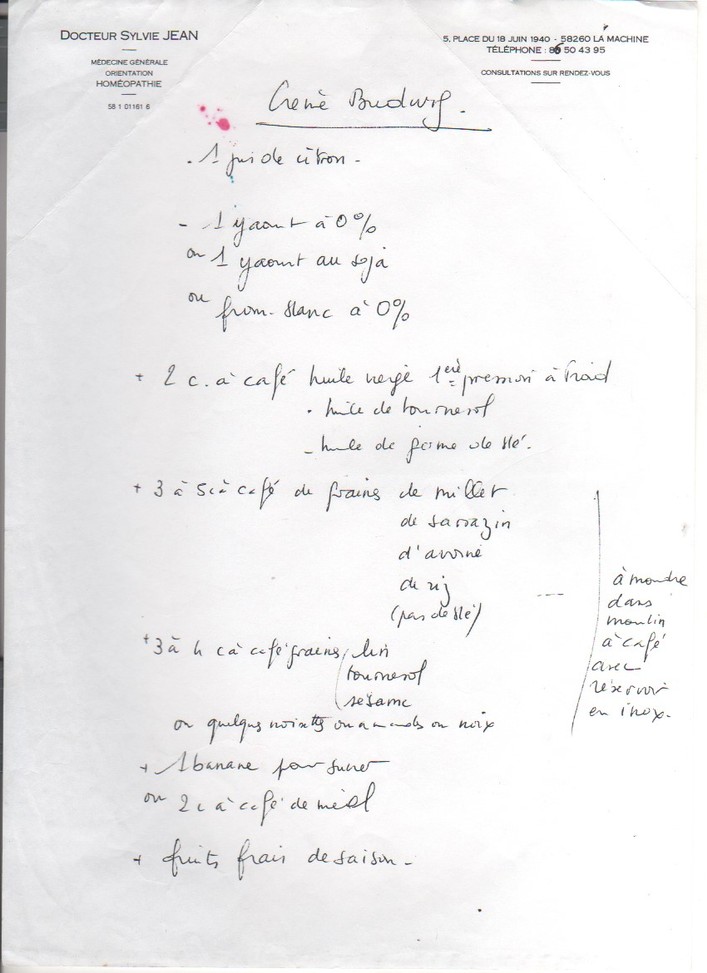 DOCTEUR SYLVIE JEAN
MÉDECINE GÉNÉRALE
ORIENTATION
HOMÉOPATHIE
58 1 01161 6
5, PLACE DU 18 JUIN 1940 - 58260 LA MACHINE
TÉLÉPHONE : 86 50 43 95
CONSULTATIONS SUR RENDEZ-VOUS
Crème Budwig.
- 1 jus de citron -
- 1 yaourt à 0%
ou 1 yaourt au soja
ou from. blanc à 0%
+ 2 c. à café huile vierge 1ère pression à froid
- huile de tournesol
- huile de germe de blé.
+ 3 à 5 c à café de grains de millet
de sarrazin
d'avoine
de riz
(pas de blé)
à moudre
dans
moulin
à café
avec
réservoir
en inox.
+ 3 à 4 c à café grains lin
tournesol
sésame
ou quelques noisettes ou amandes ou noix
+ 1 banane pour sucrer
ou 2 c à café de miel
+ fruits frais de saison -